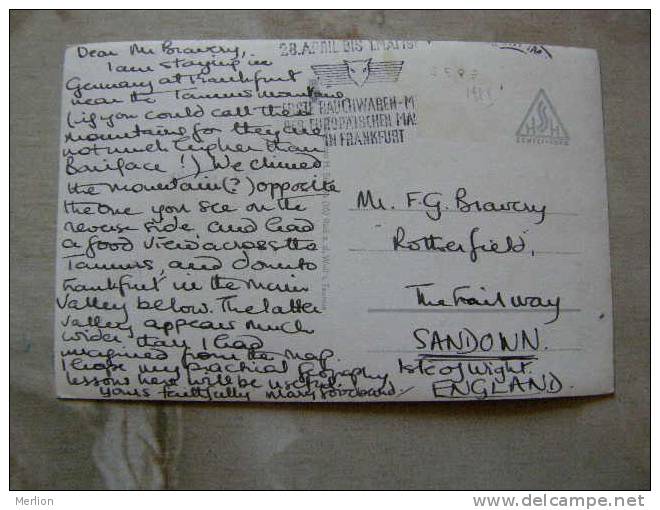 Dear Mr Bravery,
I am staying in
Germany at Frankfurt
near the Taunus mountains
(if you could call these
mountains for they are
not much higher than
Boniface!) We climed
the mountain(?) opposite
the one you see on the
reverse side and had
a good view across the
Taunus, and down to
Frankfurt in the Main
Valley below. The latter
valley appears much
wider than I had
imagined from the map.
I hope my practical geography
lessons here will be useful.
yours faithfully Mary
28. APRIL BIS 1. MAI
ERSTE RAUCHWAREN-M
DER EUROPÄISCHEN MA
IN FRANKFURT
HSH
Mr. F.G. Bravery
Rotherfield,
The Fairway
SANDOWN.
Isle of Wight.
ENGLAND.
Merlion
www.delcampe.net